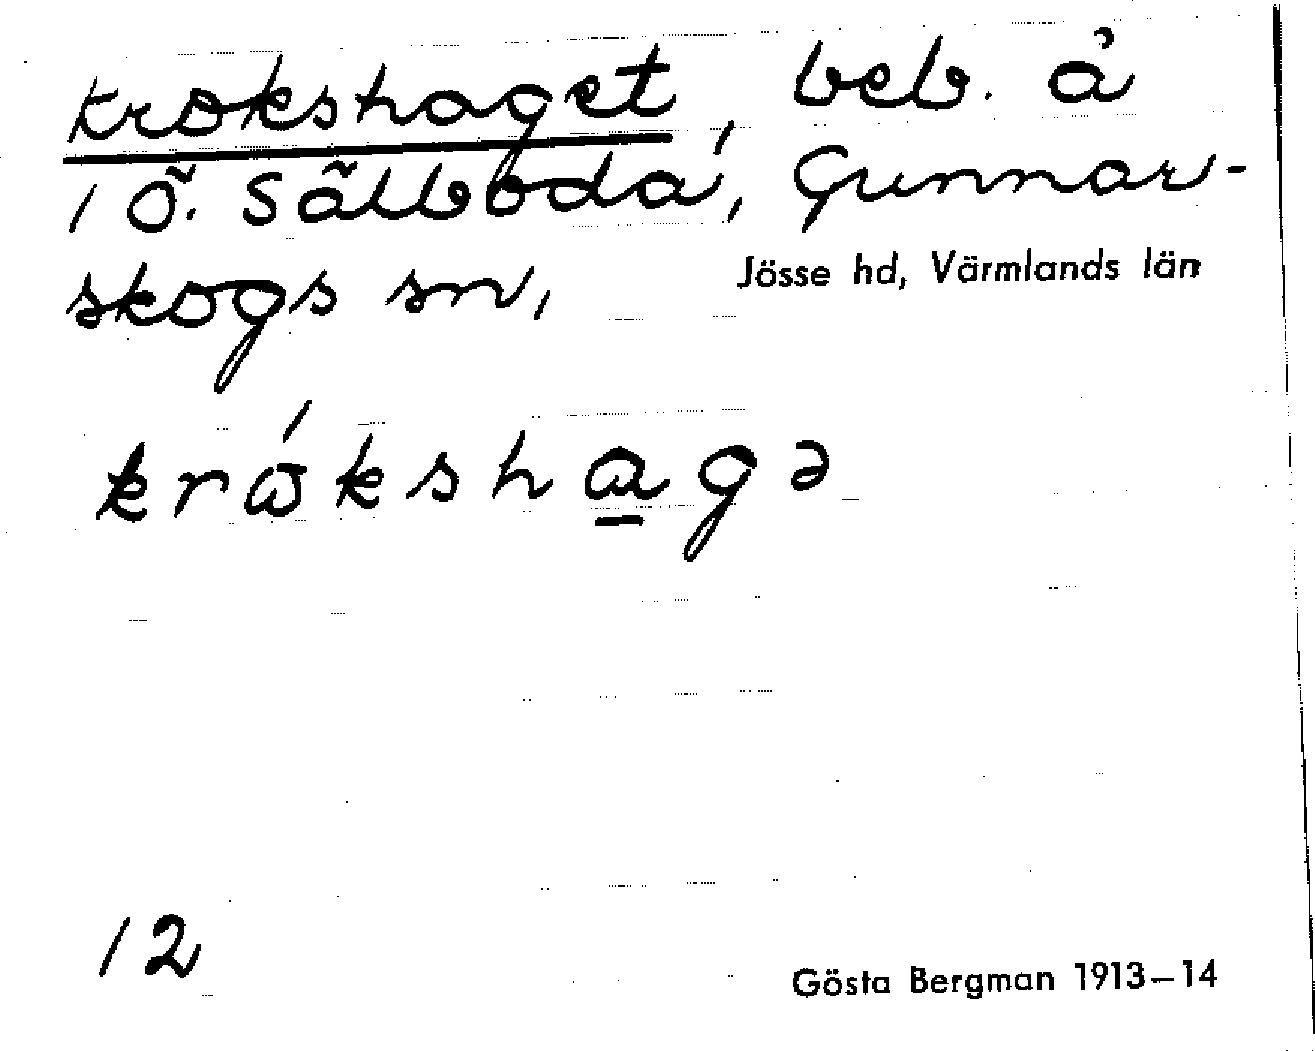 Krokshaget, beb. å
1 Ö. Sälboda, Gunnar-
skogs sn, Jösse hd, Värmlands län
krókshagə
12
Gösta Bergman 1913–14